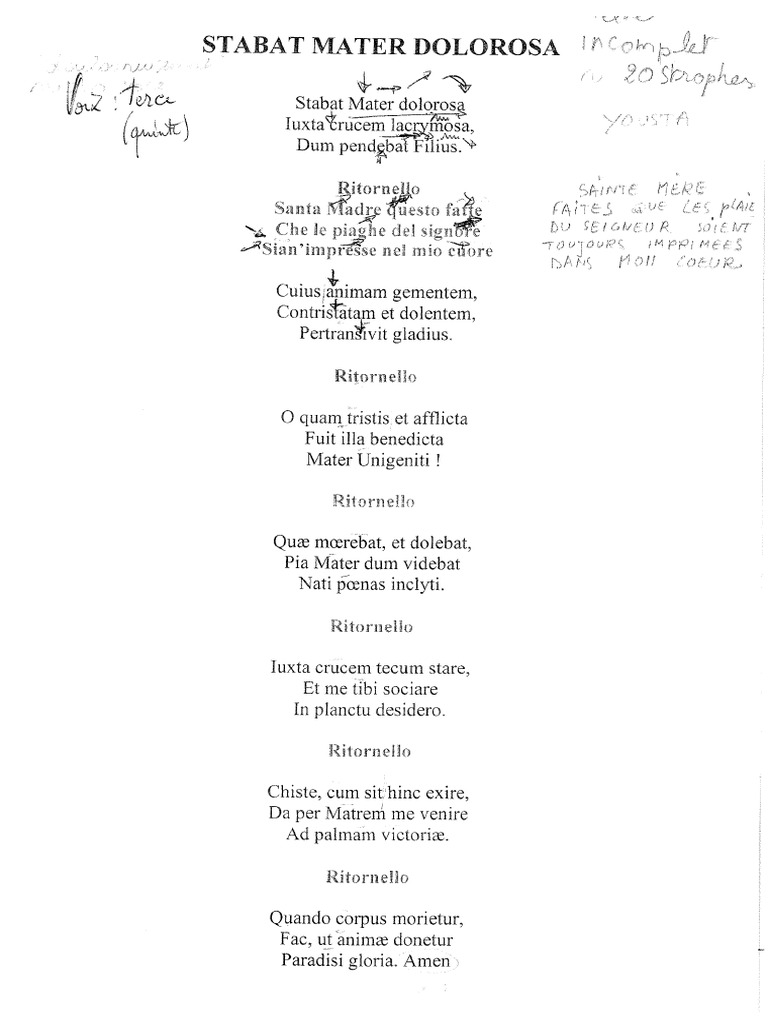 STABAT MATER DOLOROSA
incomplet
20 strophes
Voix : terce
(quinte)
YOUSTA
Stabat Mater dolorosa
Iuxta crucem lacrymosa,
Dum pendebat Filius.
Ritornello
Santa Madre questo fatte
Che le piaghe del signore
Sian'impresse nel mio cuore
SAINTE MÈRE
FAITES QUE LES PLAIE
DU SEIGNEUR SOIENT
TOUJOURS IMPRIMEES
DANS MON COEUR
Cuius animam gementem,
Contristatam et dolentem,
Pertransivit gladius.
Ritornello
O quam tristis et afflicta
Fuit illa benedicta
Mater Unigeniti !
Ritornello
Quæ mœrebat, et dolebat,
Pia Mater dum videbat
Nati pœnas inclyti.
Ritornello
Iuxta crucem tecum stare,
Et me tibi sociare
In planctu desidero.
Ritornello
Chiste, cum sit hinc exire,
Da per Matrem me venire
Ad palmam victoriæ.
Ritornello
Quando corpus morietur,
Fac, ut animæ donetur
Paradisi gloria. Amen